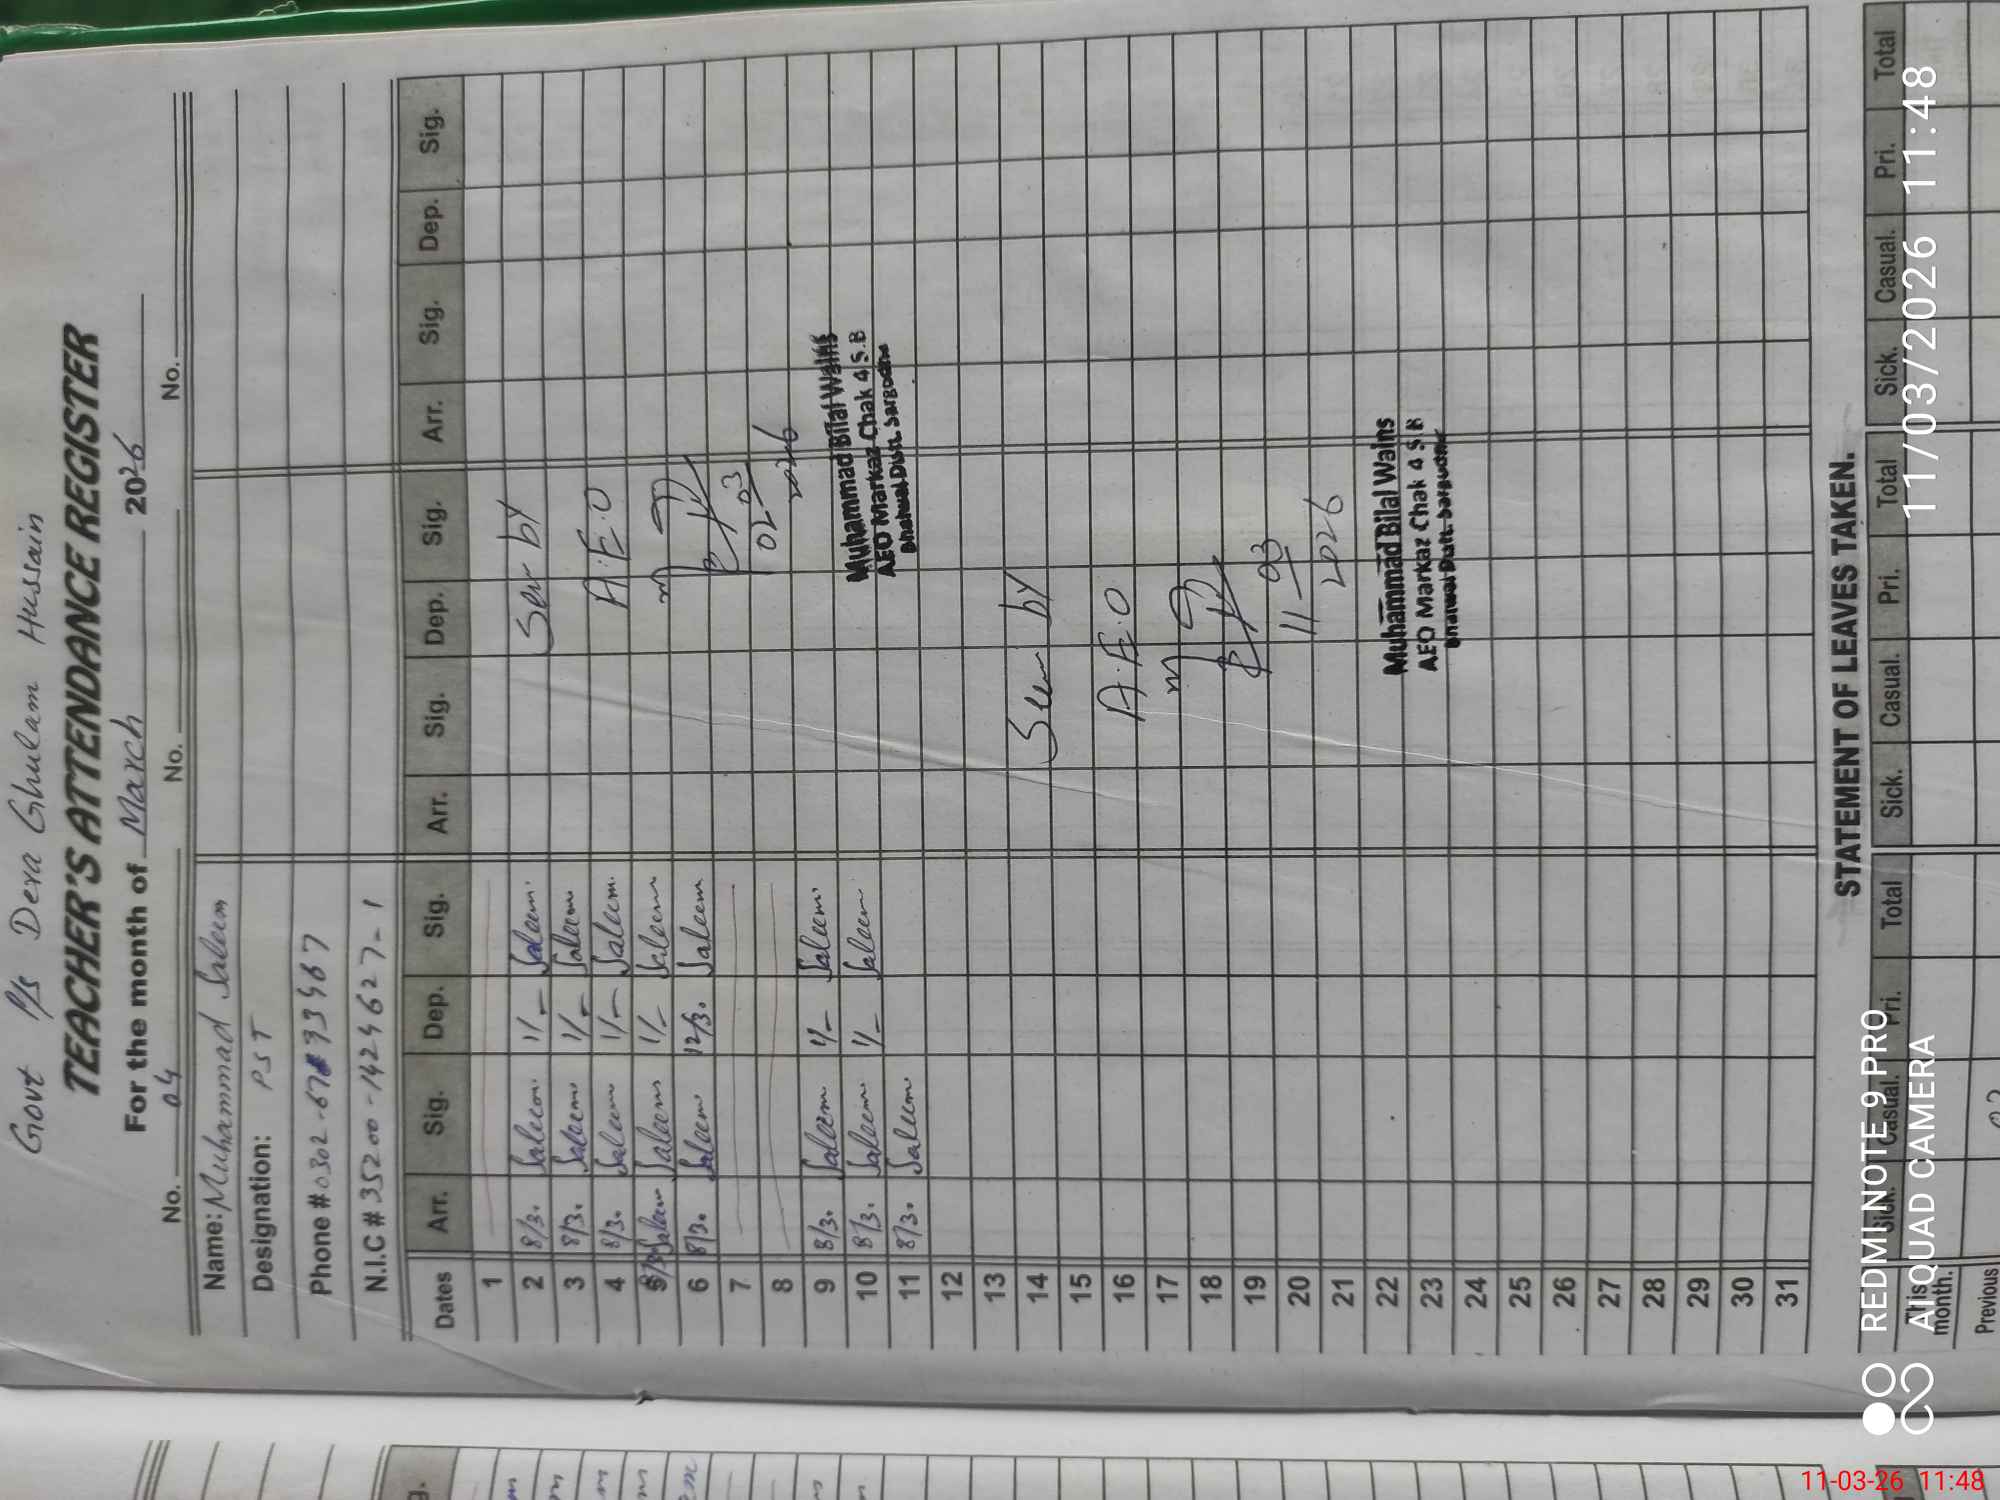 Govt P/S Dera Ghulam Hussain
TEACHER'S ATTENDANCE REGISTER
For the month of March 2026
No. 04 No. No.
Name: Muhammad Saleem
Designation: PST
Phone # 0302-67
N.I.C # 35200-1424627-1
Dates Arr. Sig. Dep. Sig. Arr. Sig. Dep. Sig. Arr. Sig. Dep. Sig.
1
2 8/30 Saleem 1/- Saleem Seen by
3 8/30 Saleem 1/- Saleem
4 8/30 Saleem 1/- Saleem A.E.O
5 8/30 Saleem Saleem 1/- Saleem
6 8/30 Saleem 12/30 Saleem
7
8 02-03
2026
9 8/30 Saleem 1/- Saleem
10 8/30 Saleem 1/- Saleem
11 8/30 Saleem
Muhammad Bilal Wains
AEO Markaz Chak 4 S.B
Bhalwal Distt. Sargodha
12
13
14 Seen by
15
16 A.E.O
17
18
19
20 11-03
21 2026
22
23
Muhammad Bilal Wains
AEO Markaz Chak 4 S.B
Bhalwal Distt. Sargodha
24
25
26
27
28
29
30
31
STATEMENT OF LEAVES TAKEN.
Sick. Casual. Pri. Total Sick. Casual. Pri. Total Sick. Casual. Pri. Total
This month.
Previous
REDMI NOTE 9 PRO
AI QUAD CAMERA
11/03/2026 11:48
11-03-26 11:48